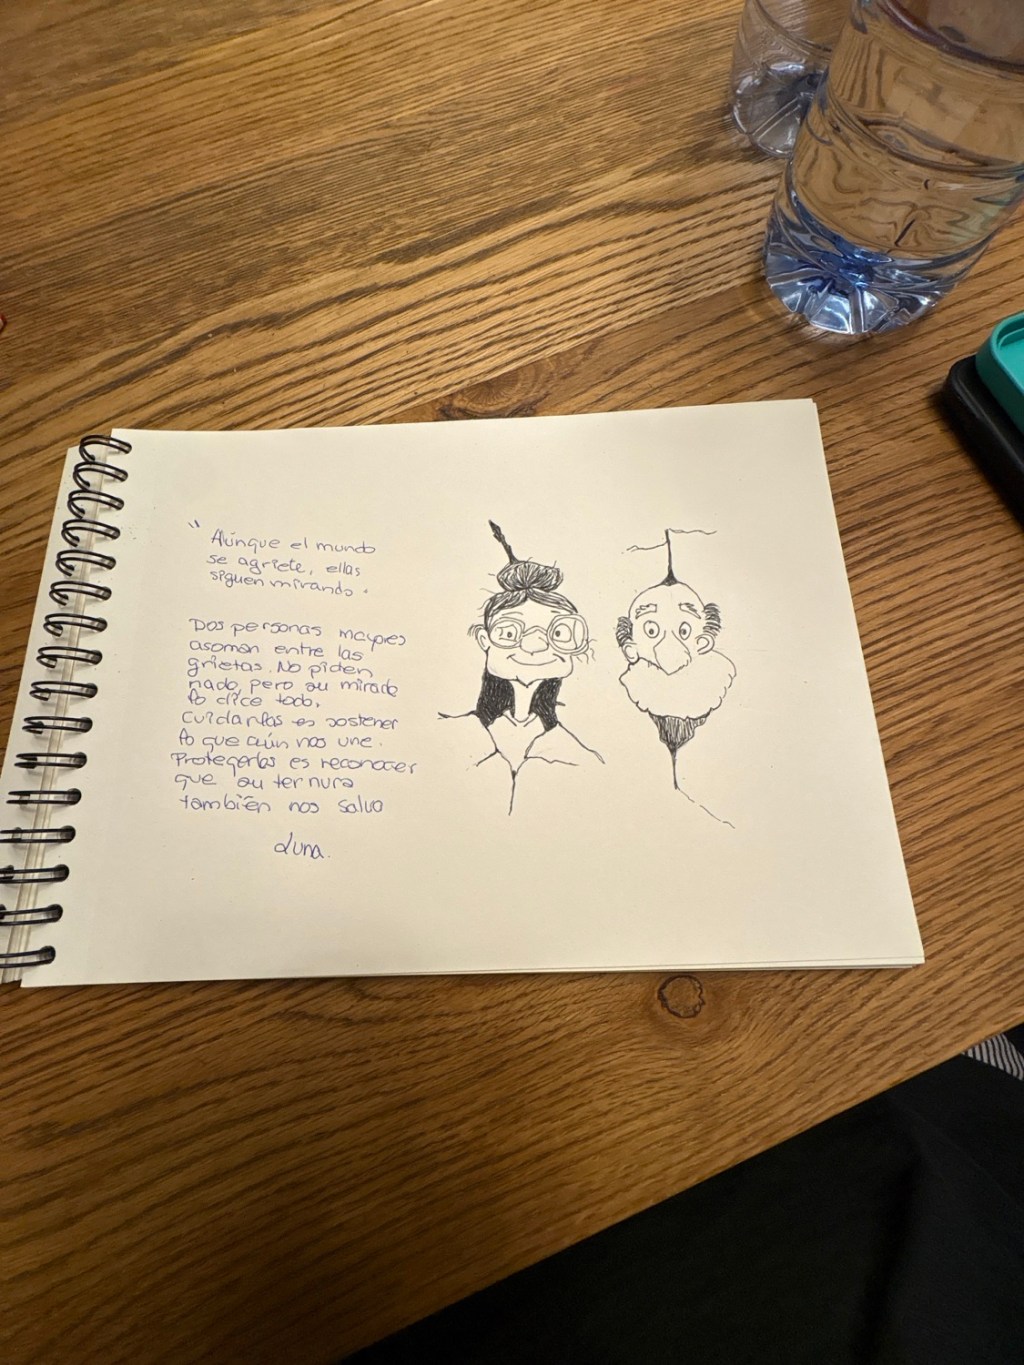 "
Aunque el mundo
se agriete, ellas
siguen mirando.
Dos personas mayores
asoman entre las
grietas. No piden
nada, pero su mirada
lo dice todo.
Cuidarlas es sostener
lo que aún nos une.
Protegerlas es reconocer
que su ternura
también nos salva
Luna.